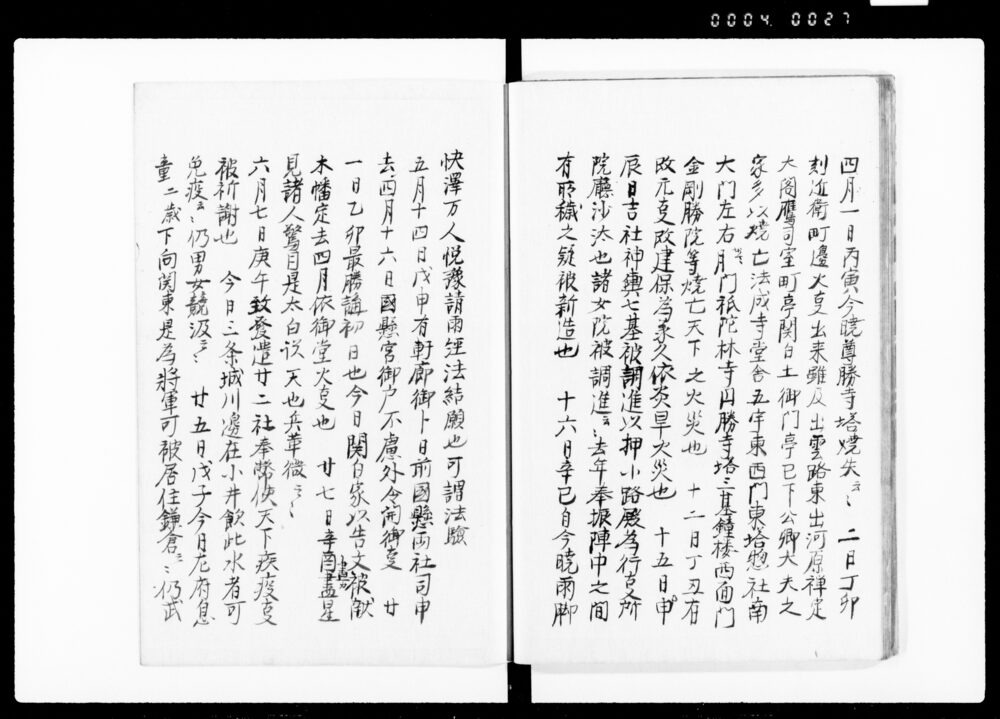 0004 0027
四月一日丙寅今暁尊勝寺塔焼失云々 二日丁卯
刻近衛町邊火㕝出来雖及出雲路東出河原禅定
大閤鷹司室町亭関白土御门亭已下公卿大夫之
家多以焼亡法成寺堂舎五宇東西門東塔惣社南
大門左右月門祇陀林寺円勝寺塔三基鐘楼西面門
金剛勝院等焼亡天下之火災也 十二日丁丑有
改元㕝改建保為承久依炎旱火災也 十五日申
辰日吉社神輿七基被調進以押小路殿為行㕝所
院廳沙汰也諸女院被調進云々去年奉振陣中之間
有耶穢之疑被新造也 十六日辛巳自今暁雨脚
快澤万人悦豫請雨経法結願也可謂法験
五月十四日戊申有軒廊御卜日前國懸両社司申
去四月十六日國懸宮御戸不慮外令開御㕝 廿
一日乙卯最勝講初日也今日関白家以告文被献
木幡定去四月依御堂火㕝也 廿七日辛酉盡星
晝歟
見諸人驚目是太白説天也兵革徴云々
六月七日庚午致發遣廿二社奉幣使天下疾疫㕝
被祈謝也 今日三条城川邊在小井飲此水者可
免疫云々仍男女競汲云々 廿五日戊子今日左府息
童二歳下向関東是為将軍可被居住鎌倉云々仍武